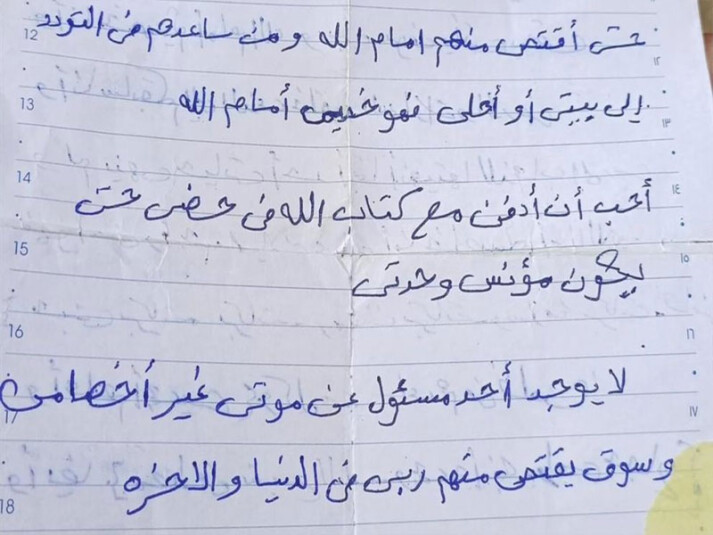 حتى أقتص منهم امام الله ومن ساعدهم فى التودد
12
١٢
إلى بيتى أو أهلى فهو خصيمى أمام الله
13
١٣
أحب أن أدفن مع كتاب الله فى حضنى حتى
14
١٤
يكون مؤنس وحدتى
15
١٥
16
١٦
لا يوجد أحد مسئول عن موتى غير أخصامى
17
١٧
وسوق يقتص منهم ربى فى الدنيا والاخره
18